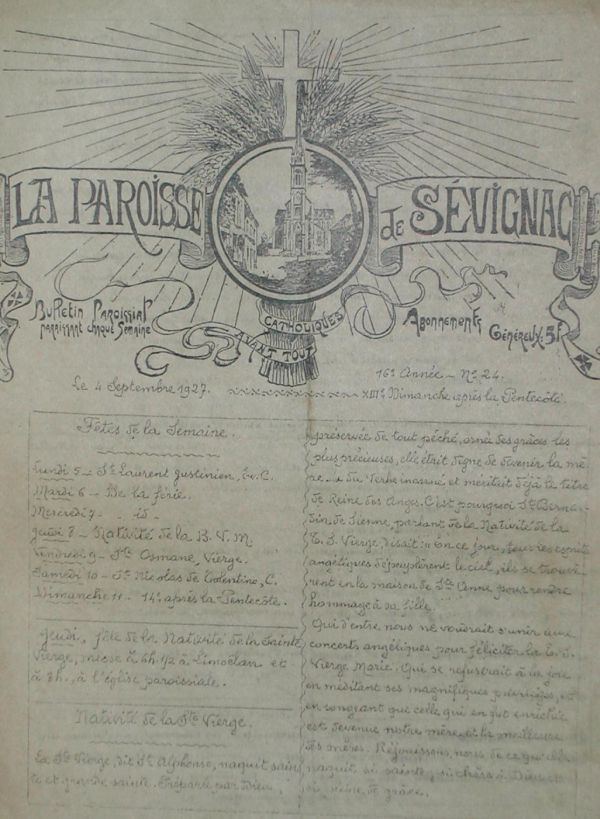 LA PAROISSE de SÉVIGNAC
Bulletin Paroissial
paraissant chaque Semaine
CATHOLIQUES
AVANT TOUT
Abonnements
Généreux: 5f
16e Année - No 24.
Le 4 Septembre 1927.
XIIIe Dimanche après la Pentecôte.
Fêtes de la Semaine.
Lundi 5 - St Laurent Justinien, Ev. C.
Mardi 6 - De la férie.
Mercredi 7 - id -
Jeudi 8 - Nativité de la B. V. M.
Vendredi 9 - Ste Osmane, Vierge.
Samedi 10 - St Nicolas de Tolentino, C.
Dimanche 11 - 14e après la Pentecôte.
Jeudi, fête de la Nativité de la Sainte
Vierge, messe à 6h. 1/2 à Limoëlan et
à 8h., à l'église paroissiale.
Nativité de la Ste Vierge.
La Ste Vierge, dit St Alphonse, naquit sain
te et grande sainte. Préparée par Dieu,
préservée de tout péché, ornée des grâces les
plus précieuses, elle était digne de devenir la mè
re du Verbe incarné et méritait déjà le titre
de Reine des Anges. C'est pourquoi St Bernar
din de Sienne, parlant de la Nativité de la
T. S. Vierge, disait: En ce jour, tous les esprits
angéliques dépeuplèrent le ciel, ils se trouvè
rent en la maison de Ste Anne pour rendre
hommage à sa fille.
Qui d'entre nous ne voudrait s'unir aux
concerts angéliques pour féliciter la T. S.
Vierge Marie. Qui se refuserait à la joie
en méditant ses magnifiques privilèges, et
en songeant que celle qui en fut enrichie
est devenue notre mère, et la meilleure
des mères. Réjouissons-nous de ce qu'elle
naquit si sainte, si chère à Dieu et
si pleine de grâce.